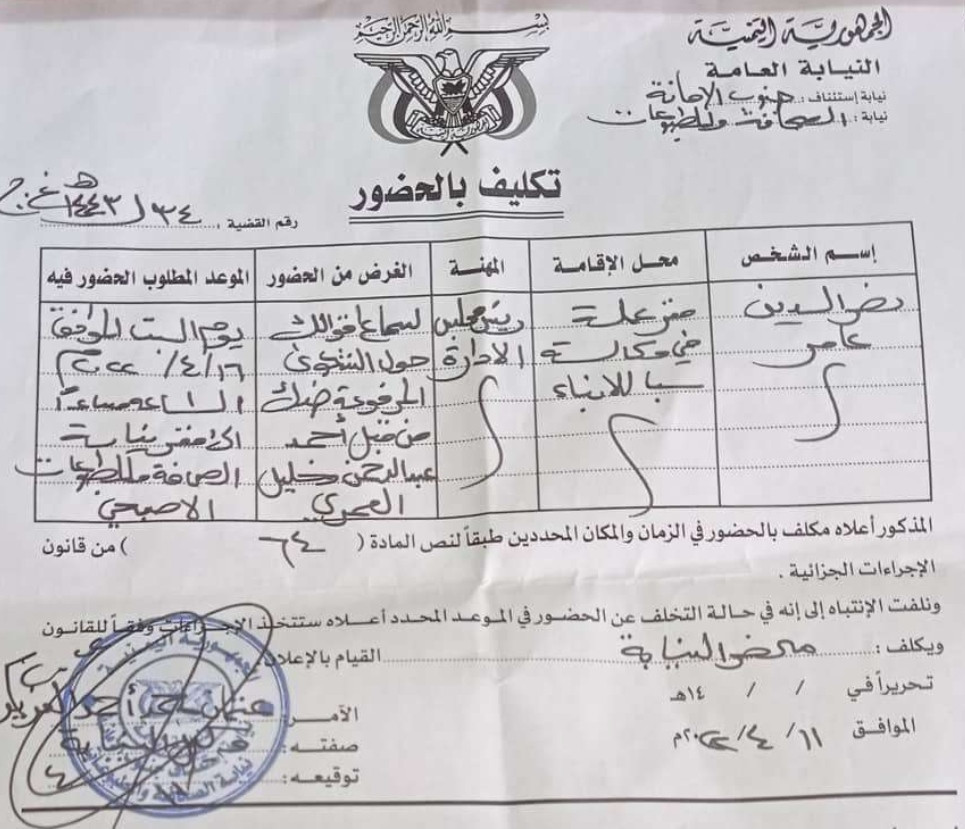 بسم الله الرحمن الرحيم
الجمهورية اليمنية
النيابة العامة
نيابة إستئناف: جنوب الأمانة
نيابة: الصحافة والمطبوعات
تكليف بالحضور
رقم القضية: ٣٤ ل ١٤٤٣هـ غ.ج
إسم الشخص | محل الإقامة | المهنة | الغرض من الحضور | الموعد المطلوب الحضور فيه
نصر الدين | مقر عمله | رئيس مجلس | لسماع أقوالك | يوم السبت الموافق
عامر | في وكالة | الادارة | حول الشكوى | ١٦/٤/٢٠٢٢م
سبا للانباء | المرفوعة ضدك | الساعة
من قبل أحمد | نيابة
عبدالرحمن خليل | الصحافة والمطبوعات
العمري | الاصبحي
المذكور أعلاه مكلف بالحضور في الزمان والمكان المحددين طبقاً لنص المادة ( ٦٤ ) من قانون
الإجراءات الجزائية .
ونلفت الإنتباه إلى إنه في حالة التخلف عن الحضور في الموعد المحدد أعلاه ستتخذ الإجراءات وفقاً للقانون
ويكلف: محضر النيابة القيام بالإعلان
تحريراً في / / ١٤هـ
الموافق ١١/٤/٢٠٢٢م
الآمر
صفته: النيابة
توقيعه: